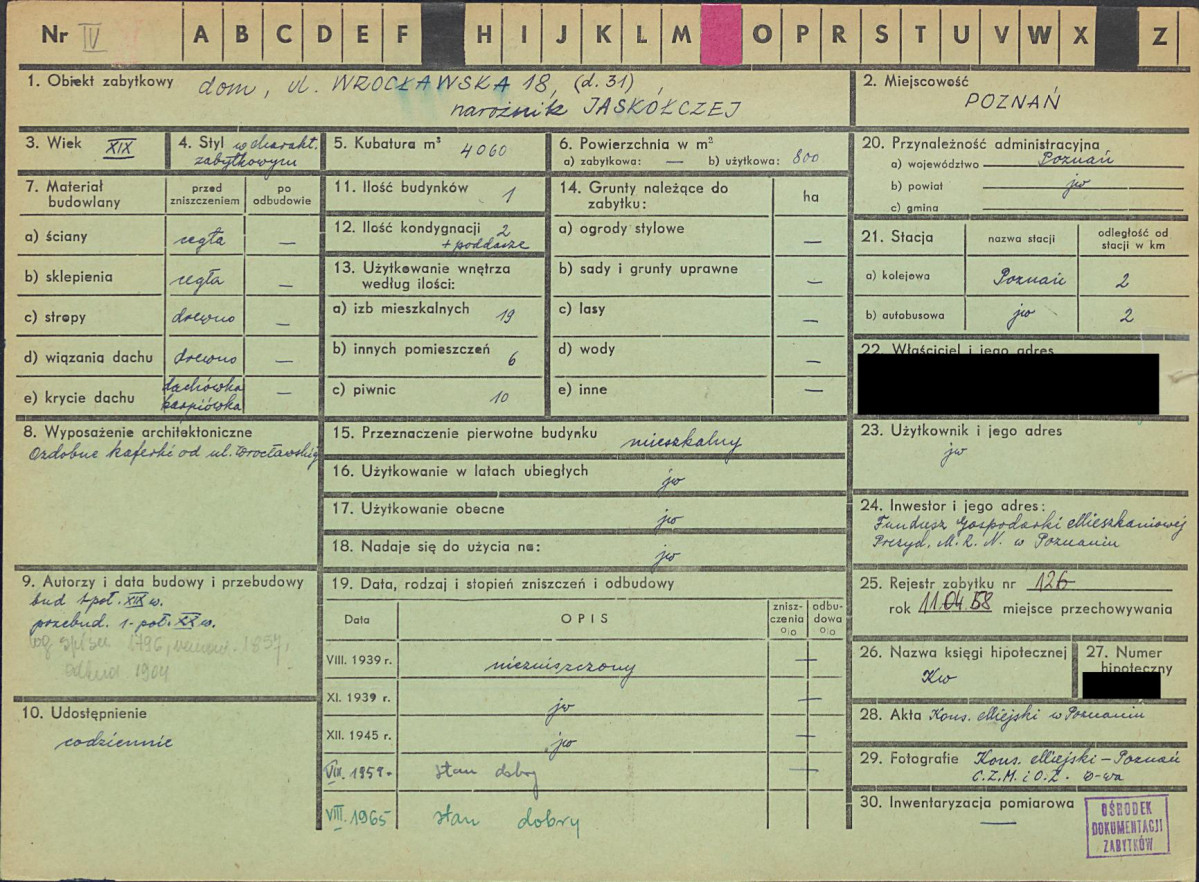 Nr IV A B C D E F H I J K L M O P R S T U V W X Z
1. Obiekt zabytkowy dom, ul. WROCŁAWSKA 18, (d. 31)
narożnik JASKÓŁCZEJ
2. Miejscowość
POZNAŃ
3. Wiek XIX
4. Styl w charakt.
zabytkowym
5. Kubatura m³ 4060
6. Powierzchnia w m²
a) zabytkowa: — b) użytkowa: 800
7. Materiał
budowlany
przed
zniszczeniem
po
odbudowie
a) ściany cegła —
b) sklepienia cegła —
c) stropy drewno —
d) wiązania dachu drewno —
e) krycie dachu dachówka
karpiówka —
8. Wyposażenie architektoniczne
Ozdobne kaferki od ul. Wrocławskiej
9. Autorzy i data budowy i przebudowy
bud 1-poł. XIX w.
przebud. 1-poł. XX w.
1796, 1857,
odbud 1904
10. Udostępnienie
codziennie
11. Ilość budynków 1
12. Ilość kondygnacji 2
+ poddasze
13. Użytkowanie wnętrza
według ilości:
a) izb mieszkalnych 19
b) innych pomieszczeń 6
c) piwnic 10
14. Grunty należące do
zabytku:
ha
a) ogrody stylowe —
b) sady i grunty uprawne —
c) lasy —
d) wody —
e) inne —
15. Przeznaczenie pierwotne budynku mieszkalny
16. Użytkowanie w latach ubiegłych jw
17. Użytkowanie obecne jw
18. Nadaje się do użycia na: jw
19. Data, rodzaj i stopień zniszczeń i odbudowy
Data
OPIS
znisz-
czenia
o/o
odbu-
dowa
o/o
VIII. 1939 r. niezniszczony —
XI. 1939 r. jw —
XII. 1945 r. jw —
VIII. 1959 r. stan dobry —
VIII. 1965 stan dobry
20. Przynależność administracyjna
a) województwo Poznań
b) powiat jw
c) gmina
21. Stacja
nazwa stacji
odległość od
stacji w km
a) kolejowa Poznań 2
b) autobusowa jw 2
22. Właściciel i jego adres
23. Użytkownik i jego adres
jw
24. Inwestor i jego adres:
Fundusz Gospodarki Mieszkaniowej
Prezyd. M. R. N. w Poznaniu
25. Rejestr zabytku nr 126
rok 11.04.58 miejsce przechowywania
26. Nazwa księgi hipotecznej
Kw
27. Numer
hipoteczny
28. Akta Kons. Miejski w Poznaniu
29. Fotografie Kons. Miejski - Poznań
C.Z.M. i O.Z. W-wa
30. Inwentaryzacja pomiarowa
—
OŚRODEK
DOKUMENTACJI
ZABYTKÓW